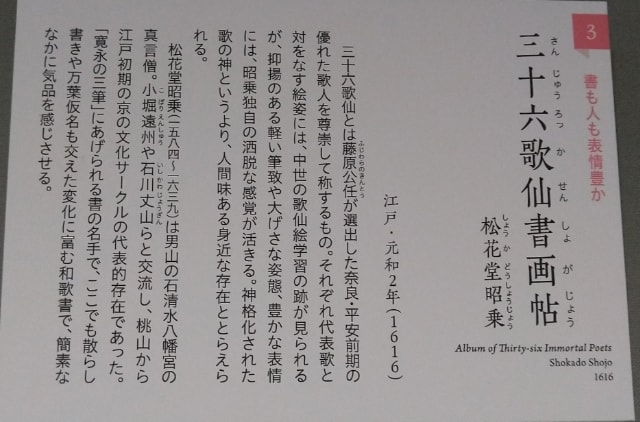 3
書も人も表情豊か
さんじゅうろっかせんしょがじょう
三十六歌仙書画帖
しょうかどうしょうじょう
松花堂昭乗
Album of Thirty-six Immortal Poets
Shokado Shojo
1616
江戸・元和2年(1616)
三十六歌仙とは藤原公任が選出した奈良・平安前期の
ふじわらのきんとう
優れた歌人を尊崇して称するもの。それぞれ代表歌と
対をなす絵姿には、中世の歌仙絵学習の跡が見られる
が、抑揚のある軽い筆致や大げさな姿態、豊かな表情
には、昭乗独自の洒脱な感覚が活きる。神格化された
歌の神というより、人間味ある身近な存在ととらえら
れる。
松花堂昭乗(一五八四〜一六三九)は男山の石清水八幡宮の
真言僧。小堀遠州や石川丈山らと交流し、桃山から
こぼりえんしゅう
いしかわじょうざん
江戸初期の京の文化サークルの代表的存在であった。
「寛永の三筆」にあげられる書の名手で、ここでも散らし
書きや万葉仮名も交えた変化に富む和歌書で、簡素な
なかに気品を感じさせる。